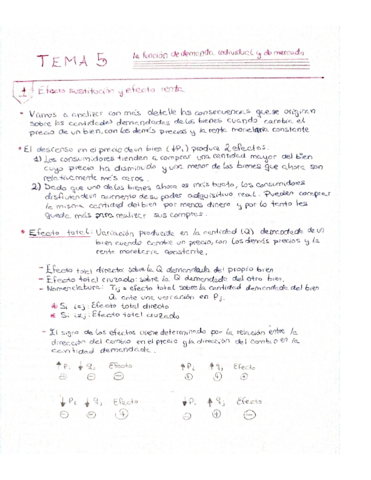 TEMA 5
la función de demanda individual y de mercado
1 Efecto sustitución y efecto renta
• Vamos a analizar con más detalle las consecuencias que se originan
sobre las cantidades demandadas de los bienes cuando cambia el
precio de un bien, con los demás precios y la renta monetaria constante
• El descenso en el precio de un bien (↓P₁) produce 2 efectos:
1) Los consumidores tienden a comprar una cantidad mayor del bien
cuyo precio ha disminuido y una menor de los bienes que ahora son
relativamente más caros.
2) Dado que uno de los bienes ahora es más barato, los consumidores
disfrutan de un aumento de su poder adquisitivo real. Pueden comprar
la misma cantidad del bien por menos dinero y por lo tanto les
queda más para realizar sus compras.
• Efecto total: Variación producida en la cantidad (Q) demandada de un
bien cuando cambia un precio, con los demás precios y la
renta monetaria constante.
- Efecto total directo: sobre la Q demandada del propio bien
- Efecto total cruzado: sobre la Q demandada del otro bien.
- Nomenclatura: Tij = efecto total sobre la cantidad demandada del bien
i ante una variación en Pj.
Si i=j: Efecto total directo
Si i≠j: Efecto total cruzado
- El signo de los efectos viene determinado por la relación entre la
dirección del cambio en el precio y la dirección del cambio en la
cantidad demandada.
↑Pi ↓qj Efecto ↑Pi ↑qj Efecto
⊕ ⊖ ⊖ ⊕ ⊕ ⊕
↓Pi ↓qj Efecto ↓Pi ↑qj Efecto
⊖ ⊖ ⊕ ⊖ ⊕ ⊖